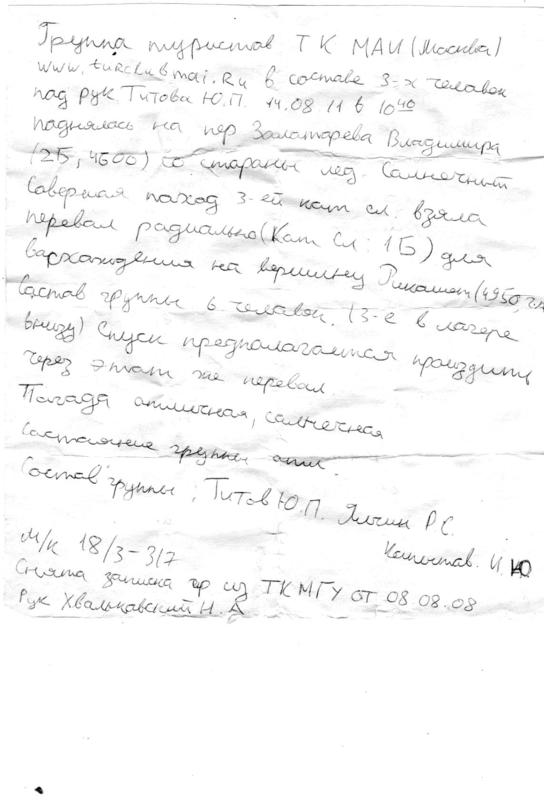 Группа туристов ТК МАИ (Москва)
www.turclubmai.Ru в составе 3-х человек
под рук Титова Ю.П. 14.08 11 в 10 40
поднялась на пер Золотарева Владимира
(2Б, 4600) со стараны лед. Солнечный
Совершая поход 3-ей кат сл. взяла
перевал радиально (Кат Сл: 1Б) для
вархождения на вершину (4950,
Состав группы 6 человек. (3-е в лагере
внизу) Спуск предполагается
через этот же перевал.
Погода отличная, солнечная
Состояние группы отл.
Состав группы: Титов Ю.П. Р С.
И. Ю
М/к 18/3-317
Снята записка гр из ТК МГУ от 08 08.08
Рук Хвальковский Н. А